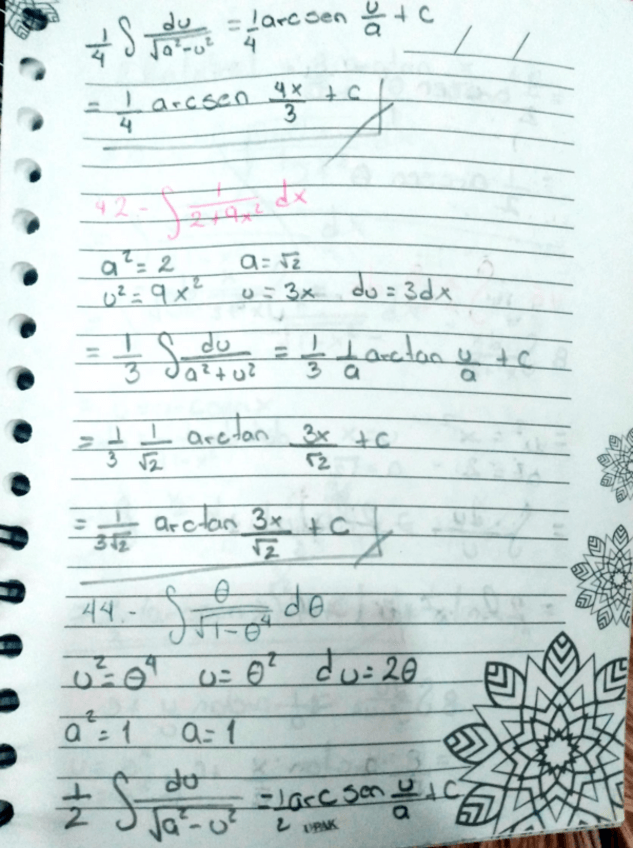 1/4 ∫ du/√a²-u² = 1/4 arcsen u/a + c
= 1/4 arcsen 4x/3 + c
42- ∫ 1/2+9x² dx
a² = 2 a = √2
u² = 9x² u = 3x du = 3dx
= 1/3 ∫ du/a²+u² = 1/3 1/a arctan u/a + c
= 1/3 1/√2 arctan 3x/√2 + c
= 1/3√2 arctan 3x/√2 + c
44- ∫ θ/√1-θ⁴ dθ
u² = θ⁴ u = θ² du = 2θ
a² = 1 a = 1
1/2 ∫ du/√a²-u² = 1/2 arcsen u/a + c